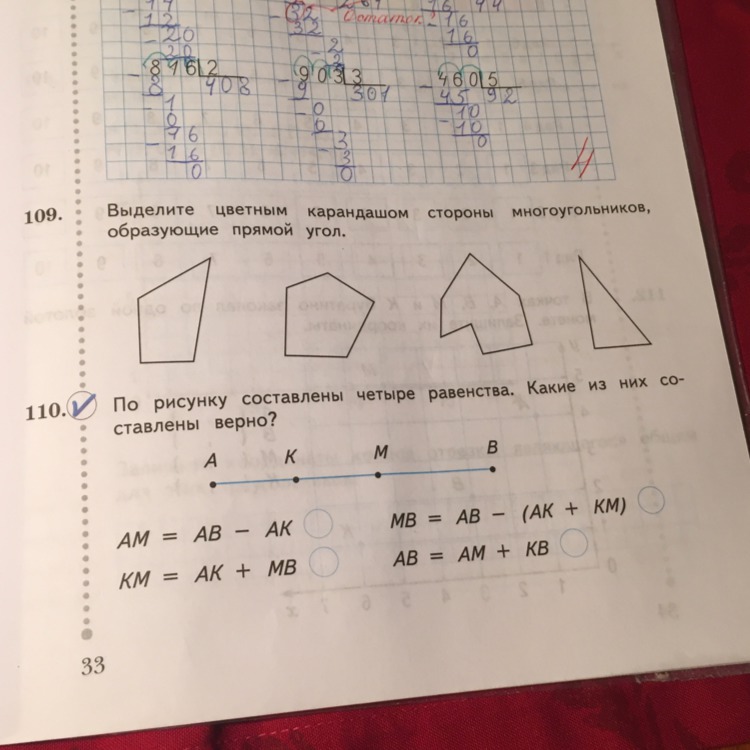 12
20
20
32
Остаток!
2
16
16
0
816 2
8 408
1
0
16
16
0
903 3
9 301
0
0
3
3
0
460 5
45 92
10
10
0
4
109. Выделите цветным карандашом стороны многоугольников,
образующие прямой угол.
110. По рисунку составлены четыре равенства. Какие из них со-
ставлены верно?
A K M B
AM = AB − AK MB = AB − (AK + KM)
KM = AK + MB AB = AM + KB
33